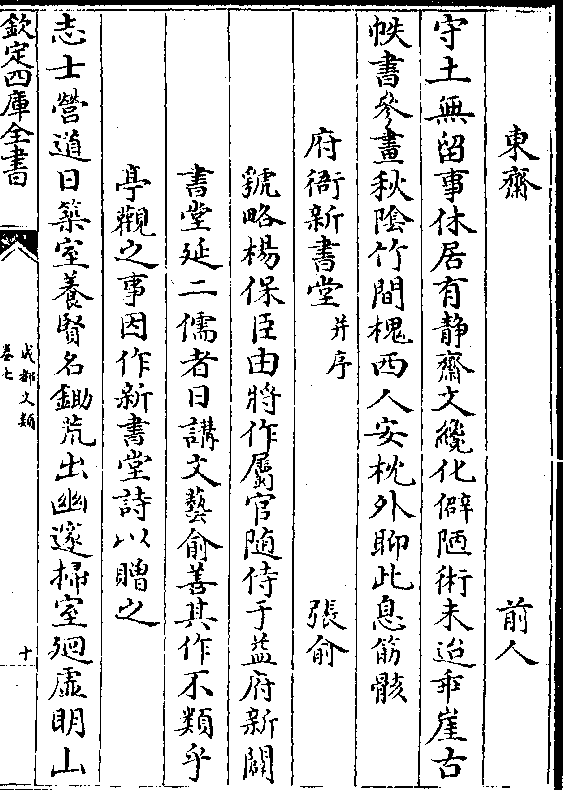 東齋 前人
守土無留事休居有静齋文纔化僻陋術未迨乖崖古
帙書參畫秋陰竹間槐西人安枕外聊此息筋骸
府衙新書堂 并序 張俞
虢略楊保臣由將作屬官随侍于益府新闢
書堂延二儒者日講文藝俞善其作不類乎
亭觀之事因作新書堂詩以贈之
志士營道日築室養賢名鋤荒出幽邃掃室廻虚明山
欽定四庫全書
成都文類
卷七
十